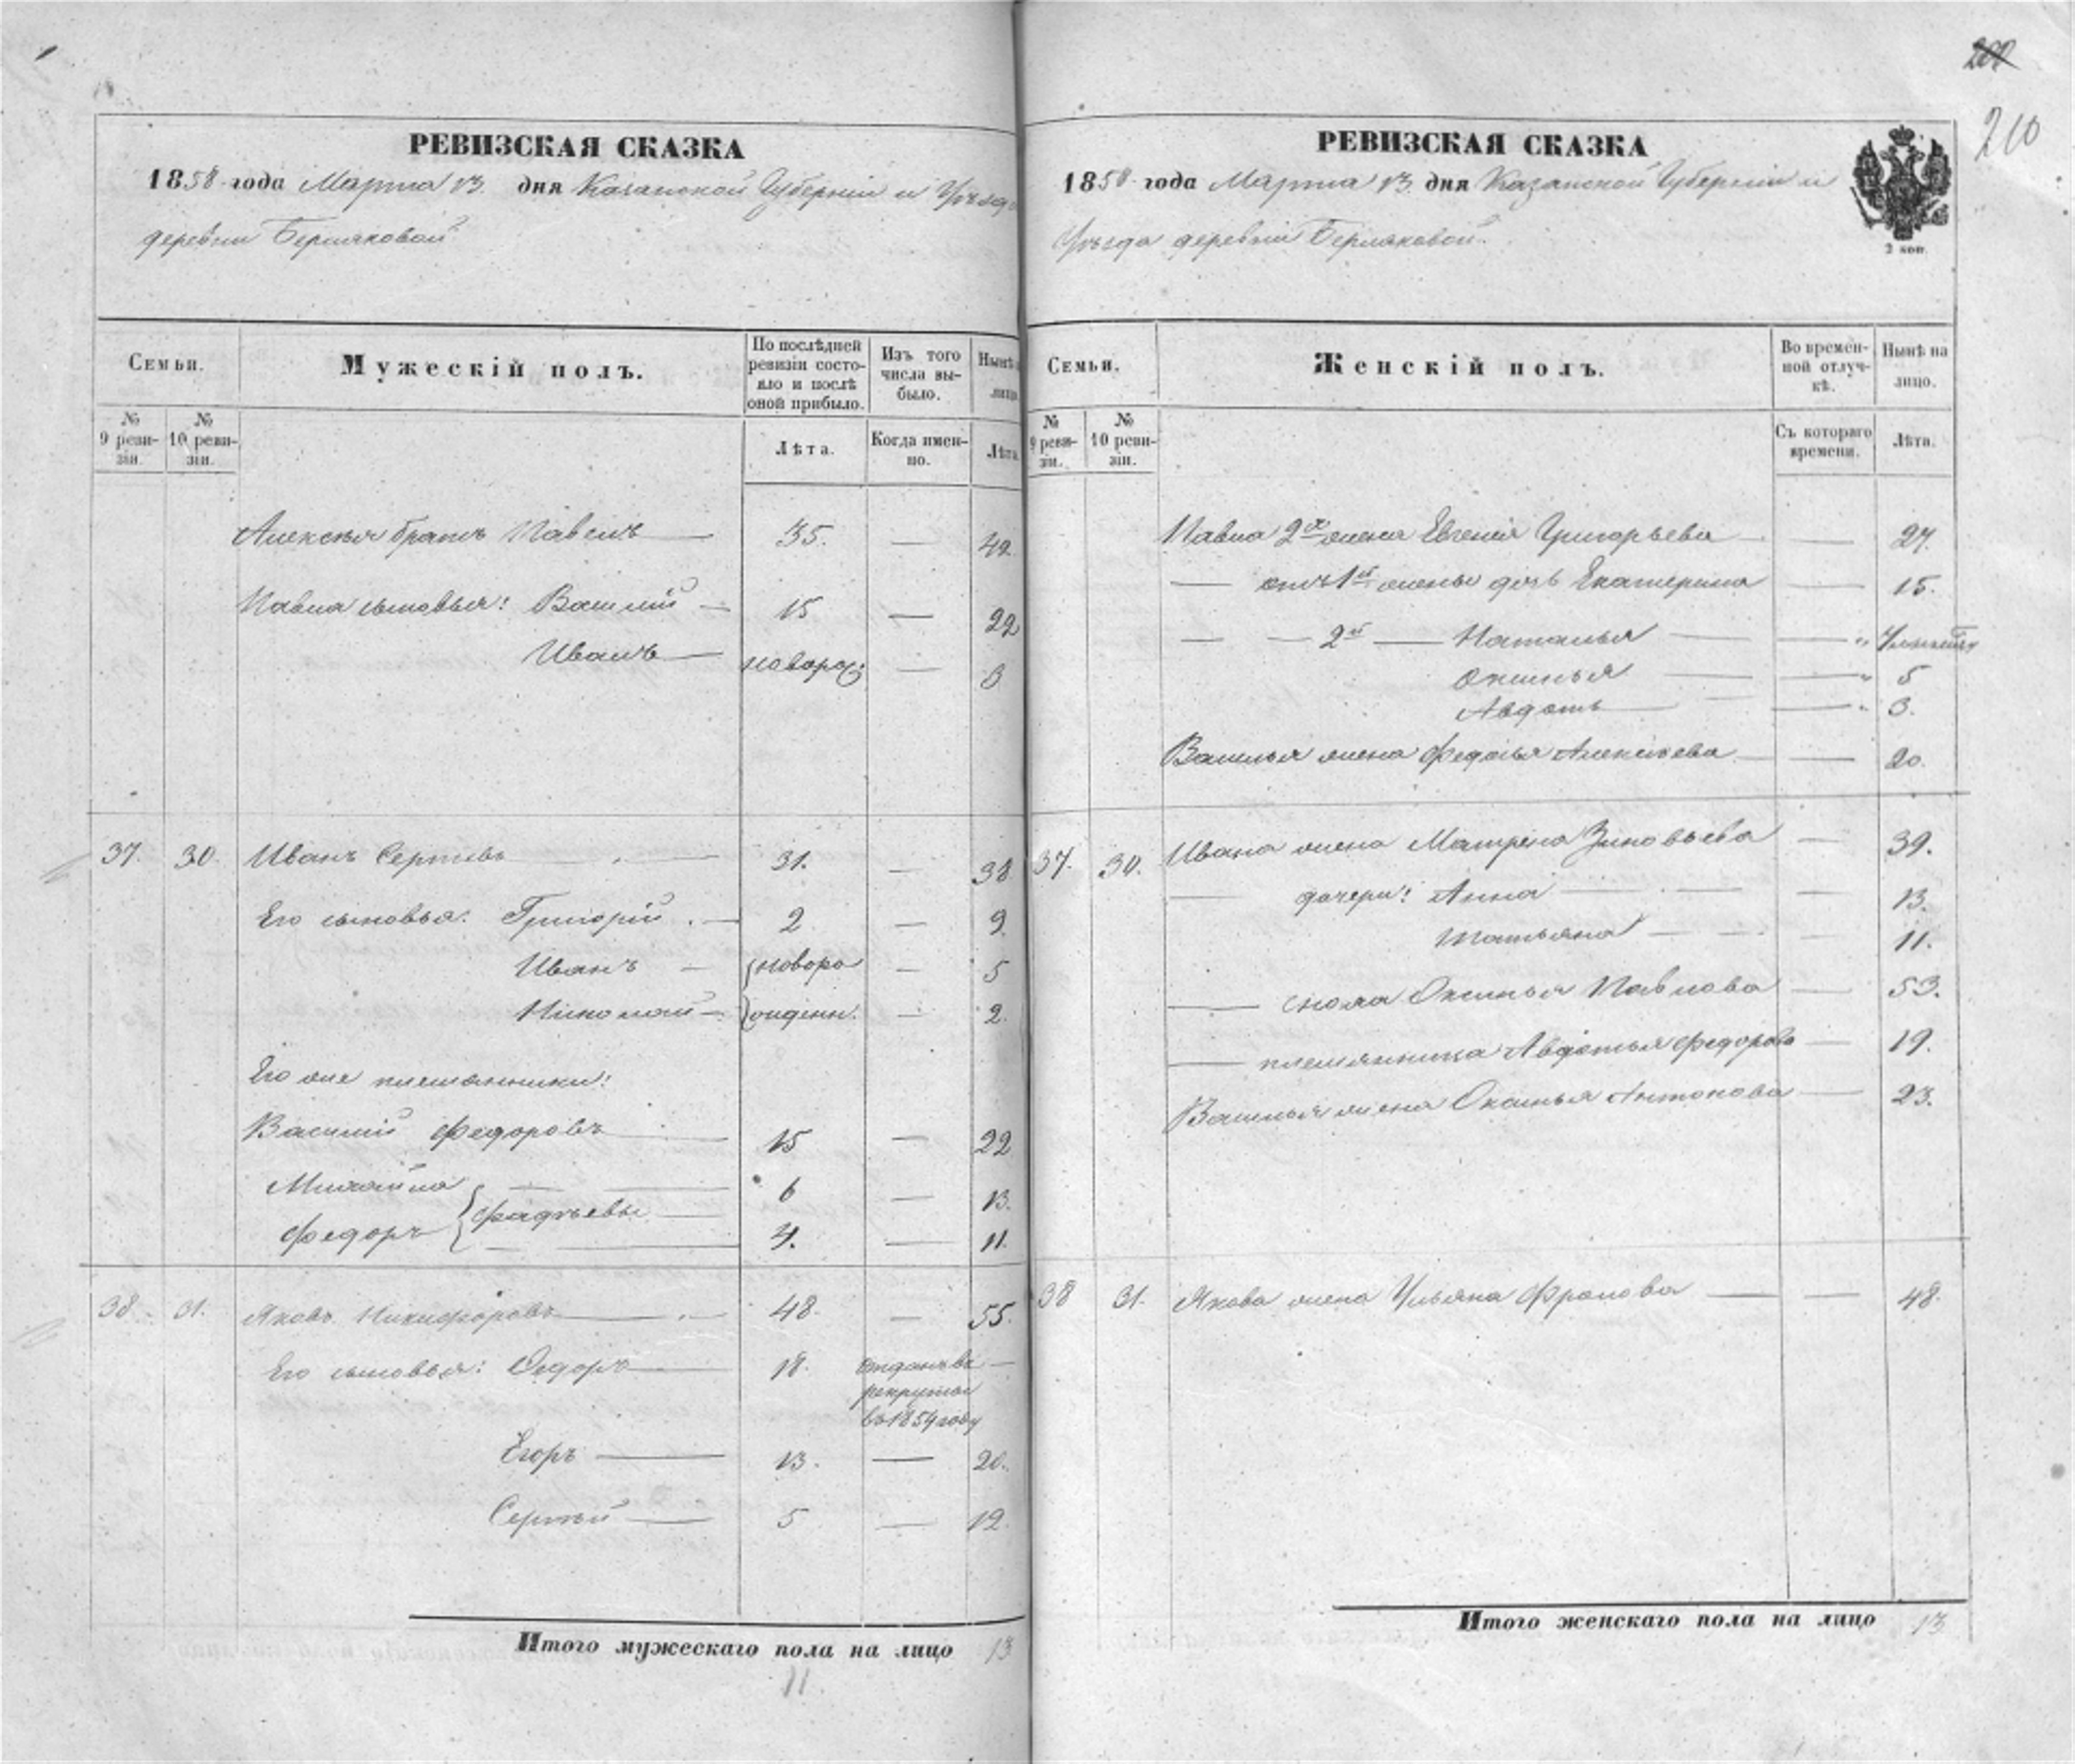 202
210
РЕВИЗСКАЯ СКАЗКА
1858 года Марта 13 дня Казанской Губерніи и Уѣзда
деревни Берляковой
Семьи.
Мужескій полъ.
По послѣдней ревизіи состояло и послѣ оной прибыло.
Изъ того числа выбыло.
Нынѣ на лицо.
№ 9 ревизіи.
№ 10 ревизіи.
Лѣта.
Когда именно.
Лѣта.
Алексѣя братъ Павелъ — 35. — 42
Павла сыновья: Василій — 15 — 22
Иванъ — новорож: — 6
37. 30. Иванъ Сергѣевъ — 31. — 38
Его сыновья: Григорій — 2 — 9
Иванъ — новоро — 5
Николай — жденн. — 2.
Его же племянники:
Василій Федоровъ — 15 — 22
Михайла — 6 — 13.
Фадѣевы
Федоръ — 4. — 11.
38. 31. Яковъ Никифоровъ — 48. — 55.
Его сыновья: Ѳедоръ — 18. отданъ въ —
рекруты
въ 1854 году
Егоръ — 13. — 20.
Сергѣй — 5 — 12.
Итого мужескаго пола на лицо 13
11.
РЕВИЗСКАЯ СКАЗКА
1858 года Марта 13 дня Казанской Губерніи и
Уѣзда деревни Берляковой.
2 коп.
Семьи.
Женскій полъ.
Во временной отлучкѣ.
Нынѣ на лицо.
№ 9 ревизіи.
№ 10 ревизіи.
Съ котораго времени.
Лѣта.
Павла 2я жена Евгенія Григорьева — 27.
— отъ 1й жены дочь Екатерина — 15.
— — 2й — Наталья — "
Оксинья — " 5
Авдоть — " 3.
Василья жена Федосья Алексѣева — 20.
37. 30. Ивана жена Матрена Зиновьева — 39.
— дочери: Анна — 13.
Татьяна — 11.
— сноха Оксинья Павлова — 53.
— племянница Авдотья Федорова — 19.
Василья жена Оксинья Антонова — 23.
38 31. Якова жена Ульяна Фролова — 48.
Итого женскаго пола на лицо 13